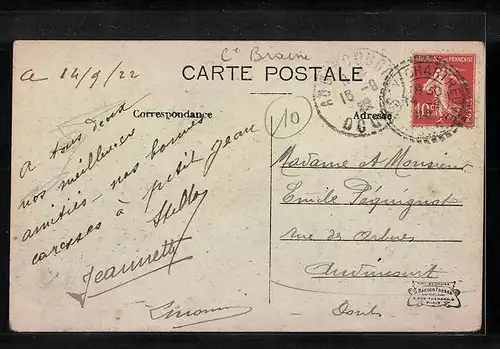 Cte Braine
a 14/9/22
CARTE POSTALE
Correspondance
Adresse
10
A tous deux
nos meilleures
amitiés - nos bonnes
caresses à petit Jean
Stella
Jeannette
Madame et Monsieur
Emile Péquignot
rue des Arbres
Audincourt
Doubs
FRANÇAISE
10c
POSTES